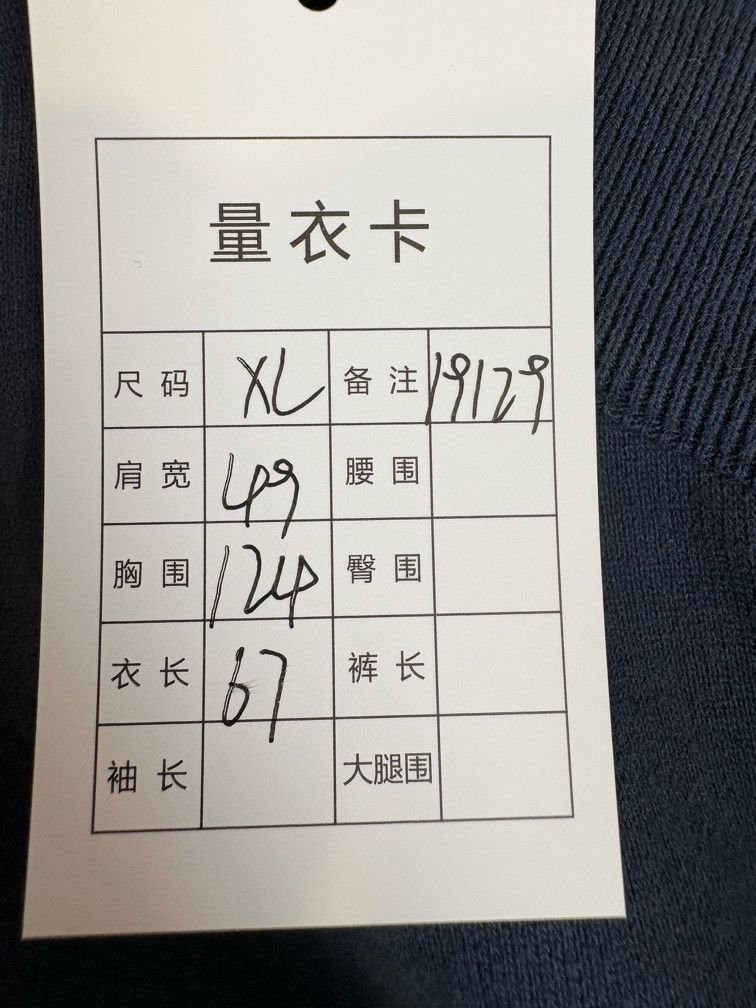 量衣卡
尺码 XL 备注 19129
肩宽 49 腰围
胸围 124 臀围
衣长 67 裤长
袖长 大腿围